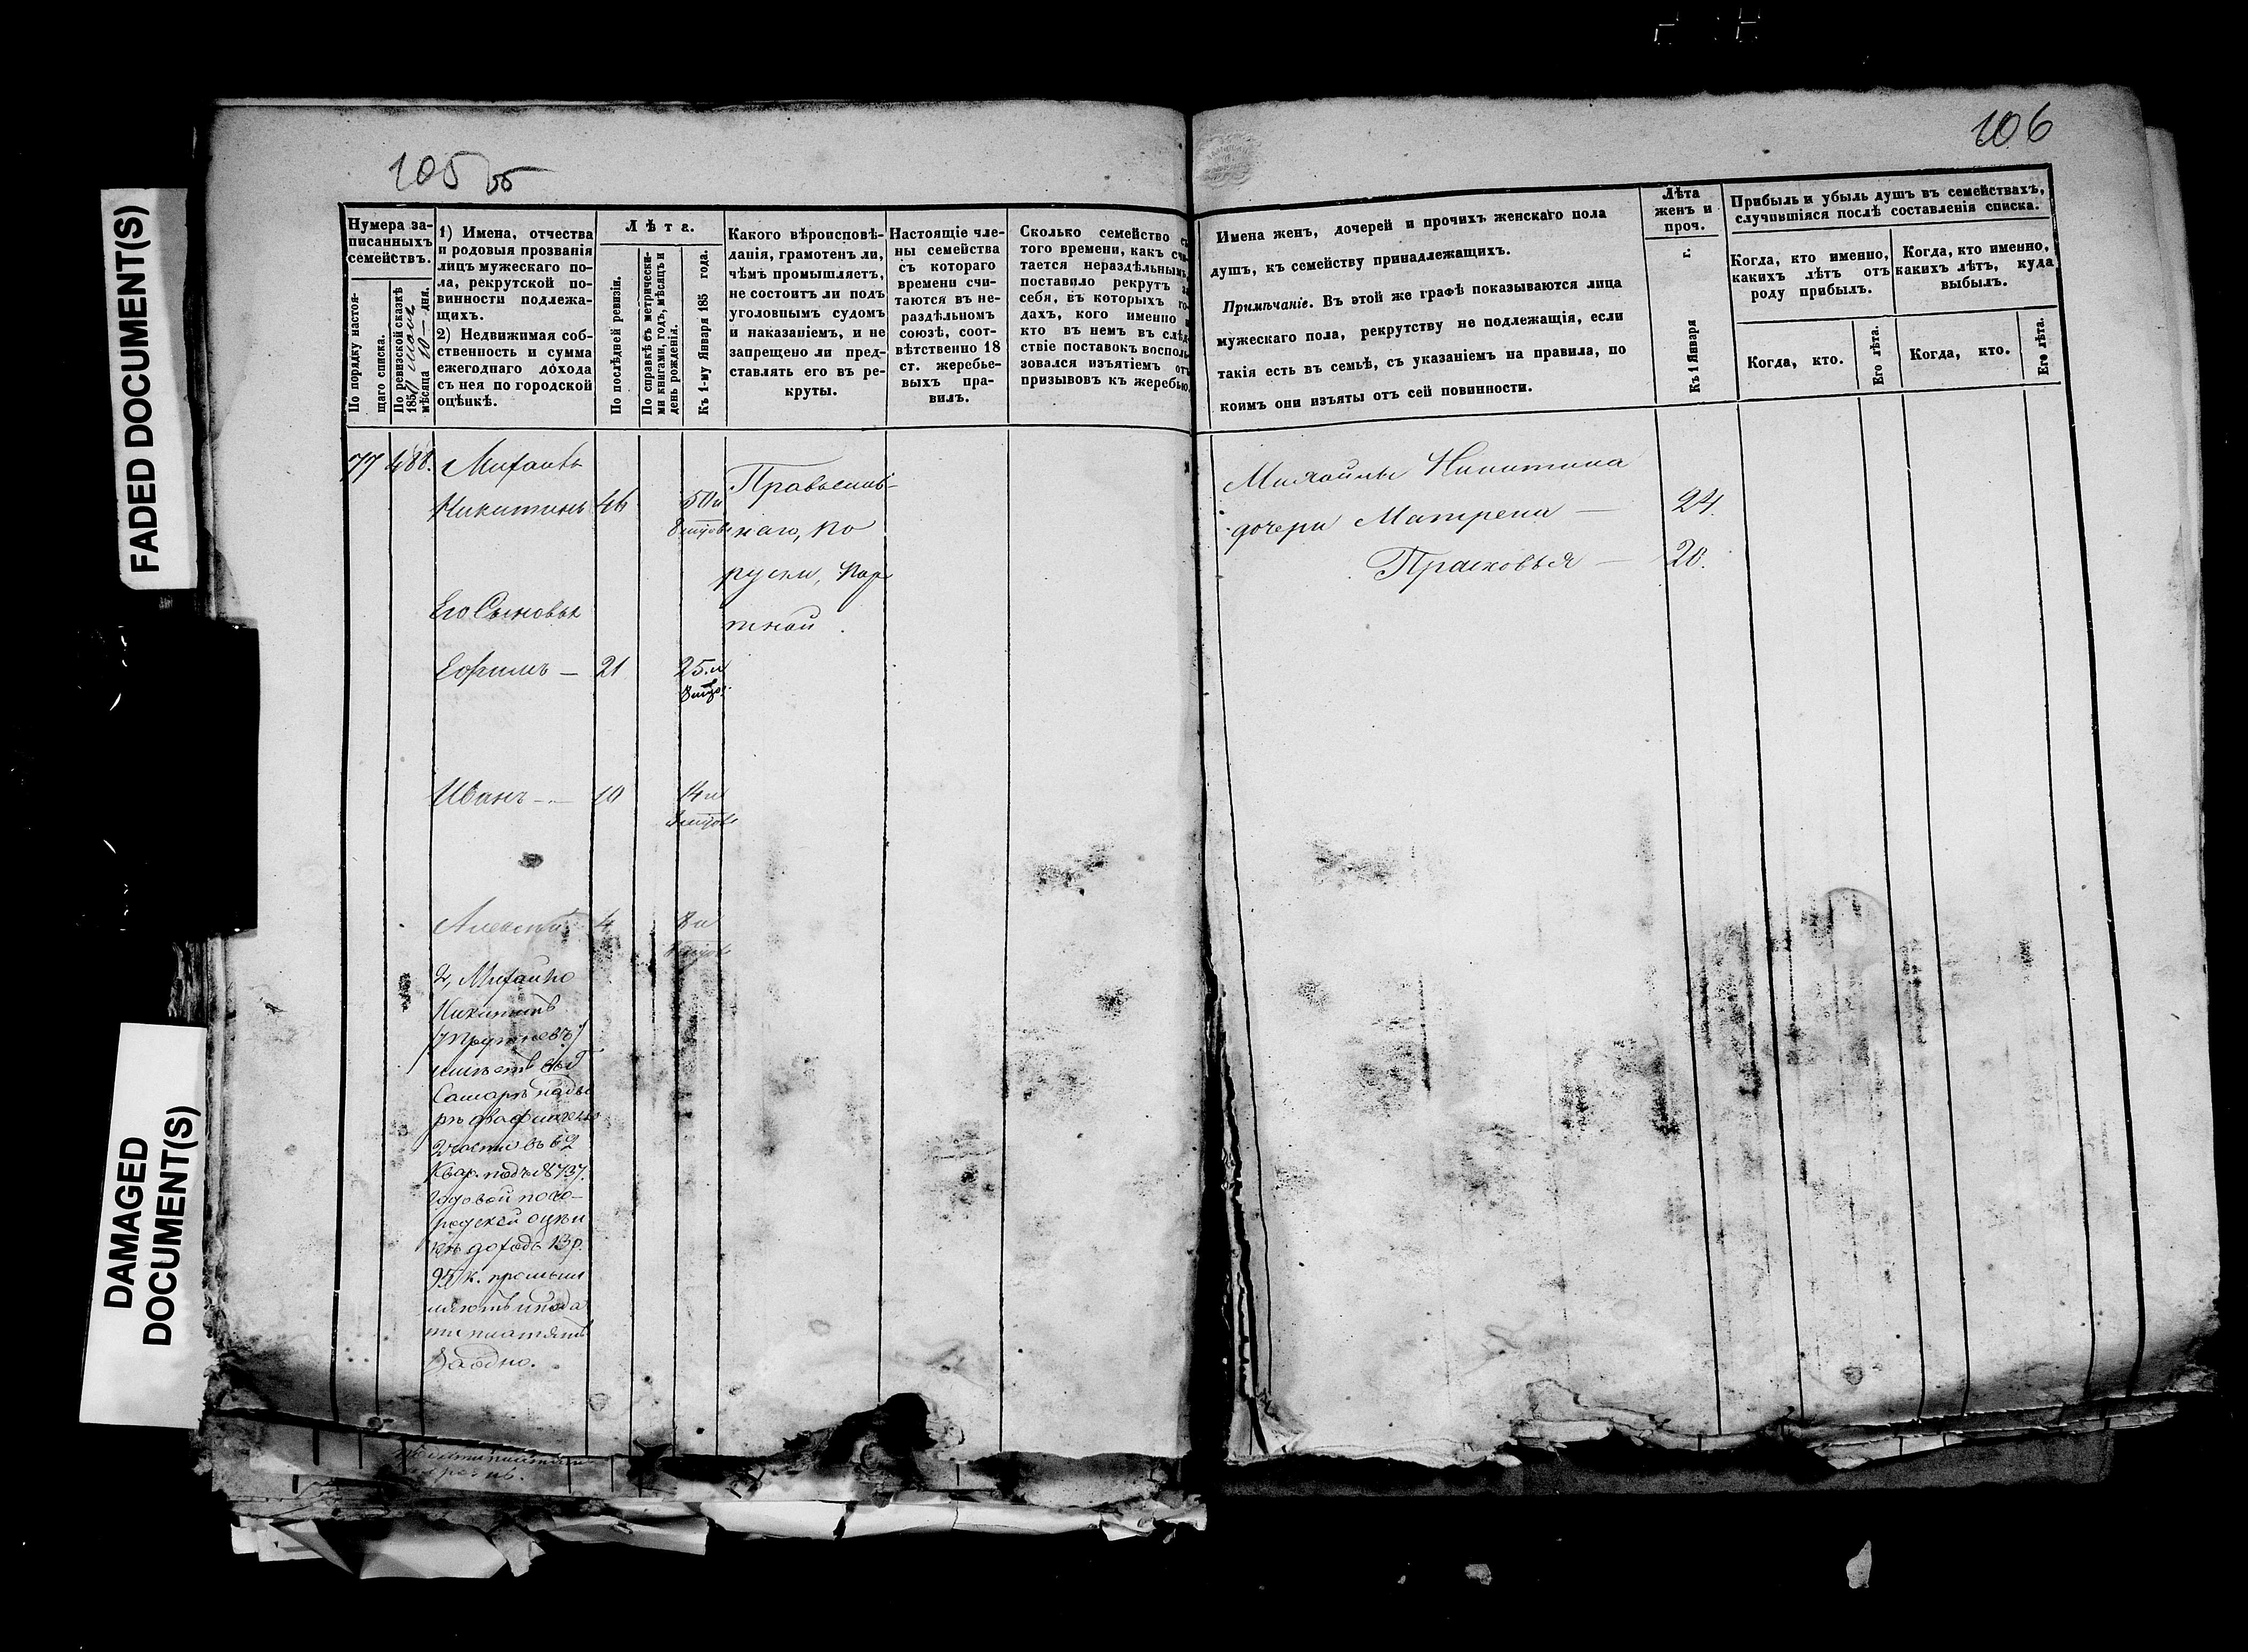 FADED DOCUMENT(S)
DAMAGED
DOCUMENT(S)
105 об
Нумера за-
писанныхъ
семействъ.
По порядку настоя-
щаго списка.
По ревизской сказкѣ
1857
мѣсяца 10 — дня.
1) Имена, отчества
и родовыя прозванія
лицъ мужескаго по-
ла, рекрутской по-
винности подлежа-
щихъ.
2) Недвижимая соб-
ственность и сумма
ежегоднаго дохода
съ нея по городской
оцѣнкѣ.
Лѣта.
По послѣдней ревизіи.
По справкѣ съ метрически-
ми книгами, годъ, мѣсяцъ и
день рожденія.
Къ 1-му Января 185 года.
Какого вѣроисповѣ-
данія, грамотенъ ли,
чѣмъ промышляетъ,
не состоитъ ли подъ
уголовнымъ судомъ
и наказаніемъ, и не
запрещено ли пред-
ставлять его въ ре-
круты.
Настоящіе чле-
ны семейства
съ котораго
времени счи-
таются въ не-
раздѣльномъ
союзѣ, соот-
вѣтственно 18
ст. жеребье-
выхъ пра-
вилъ.
Сколько семейство съ
того времени, какъ счи-
тается нераздѣльнымъ,
поставило рекрутъ за
себя, въ которыхъ го-
дахъ, кого именно и
кто въ немъ въ слѣд-
ствіе поставокъ восполь-
зовался изъятіемъ отъ
призывовъ къ жеребью.
77 488. Михаилъ
Никитинъ 46 50 л
8 мцов
Православ-
наго, по
руски, пор
тной.
Его Сыновья
Ефимъ — 21 25. л
8 мцов.
Иванъ — 10 14 л
8 мцовъ
Алексѣй 4 8 л
8 мцовъ
2, Михайло
Никитинъ
имѣетъ въ г
Самарѣ
2 части въ 62
Квар. подъ № 737.
годовой по го-
родской оцѣн
кѣ доходъ 13 р.
95 к. промыш
ляютъ и пода
ти платятъ
Заодно.
106
Имена женъ, дочерей и прочихъ женскаго пола
душъ, къ семейству принадлежащихъ.
Примѣчаніе. Въ этой же графѣ показываются лица
мужескаго пола, рекрутству не подлежащія, если
такія есть въ семьѣ, съ указаніемъ на правила, по
коимъ они изъяты отъ сей повинности.
Лѣта
женъ и
проч.
Къ 1 Января г.
Прибыль и убыль душъ въ семействахъ,
случившіяся послѣ составленія списка.
Когда, кто именно,
какихъ лѣтъ отъ
роду прибылъ.
Когда, кто именно,
какихъ лѣтъ, куда
выбылъ.
Когда, кто.
Его лѣта.
Когда, кто.
Его лѣта.
Михайлы Никитина
дочери Матрена — 24.
Прасковья — 20.